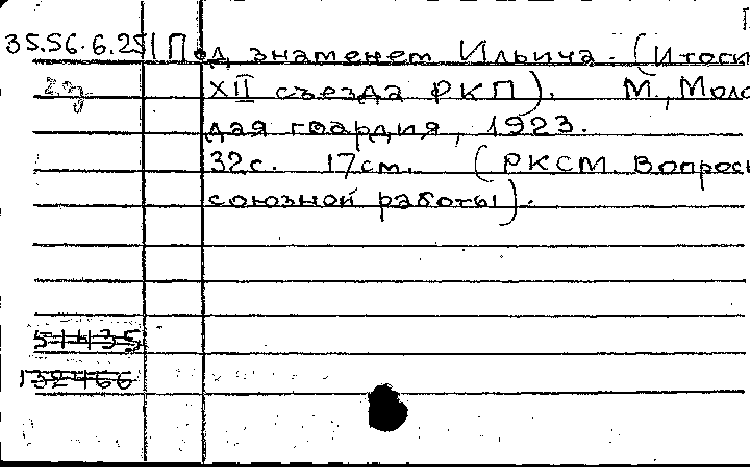 35.56.6.251 Под знаменем Ильича. (Итоги
2 экз XII съезда РКП). М., Моло
дая гвардия, 1923.
32с. 17см. (РКСМ. Вопросы
союзной работы).
51435
132466